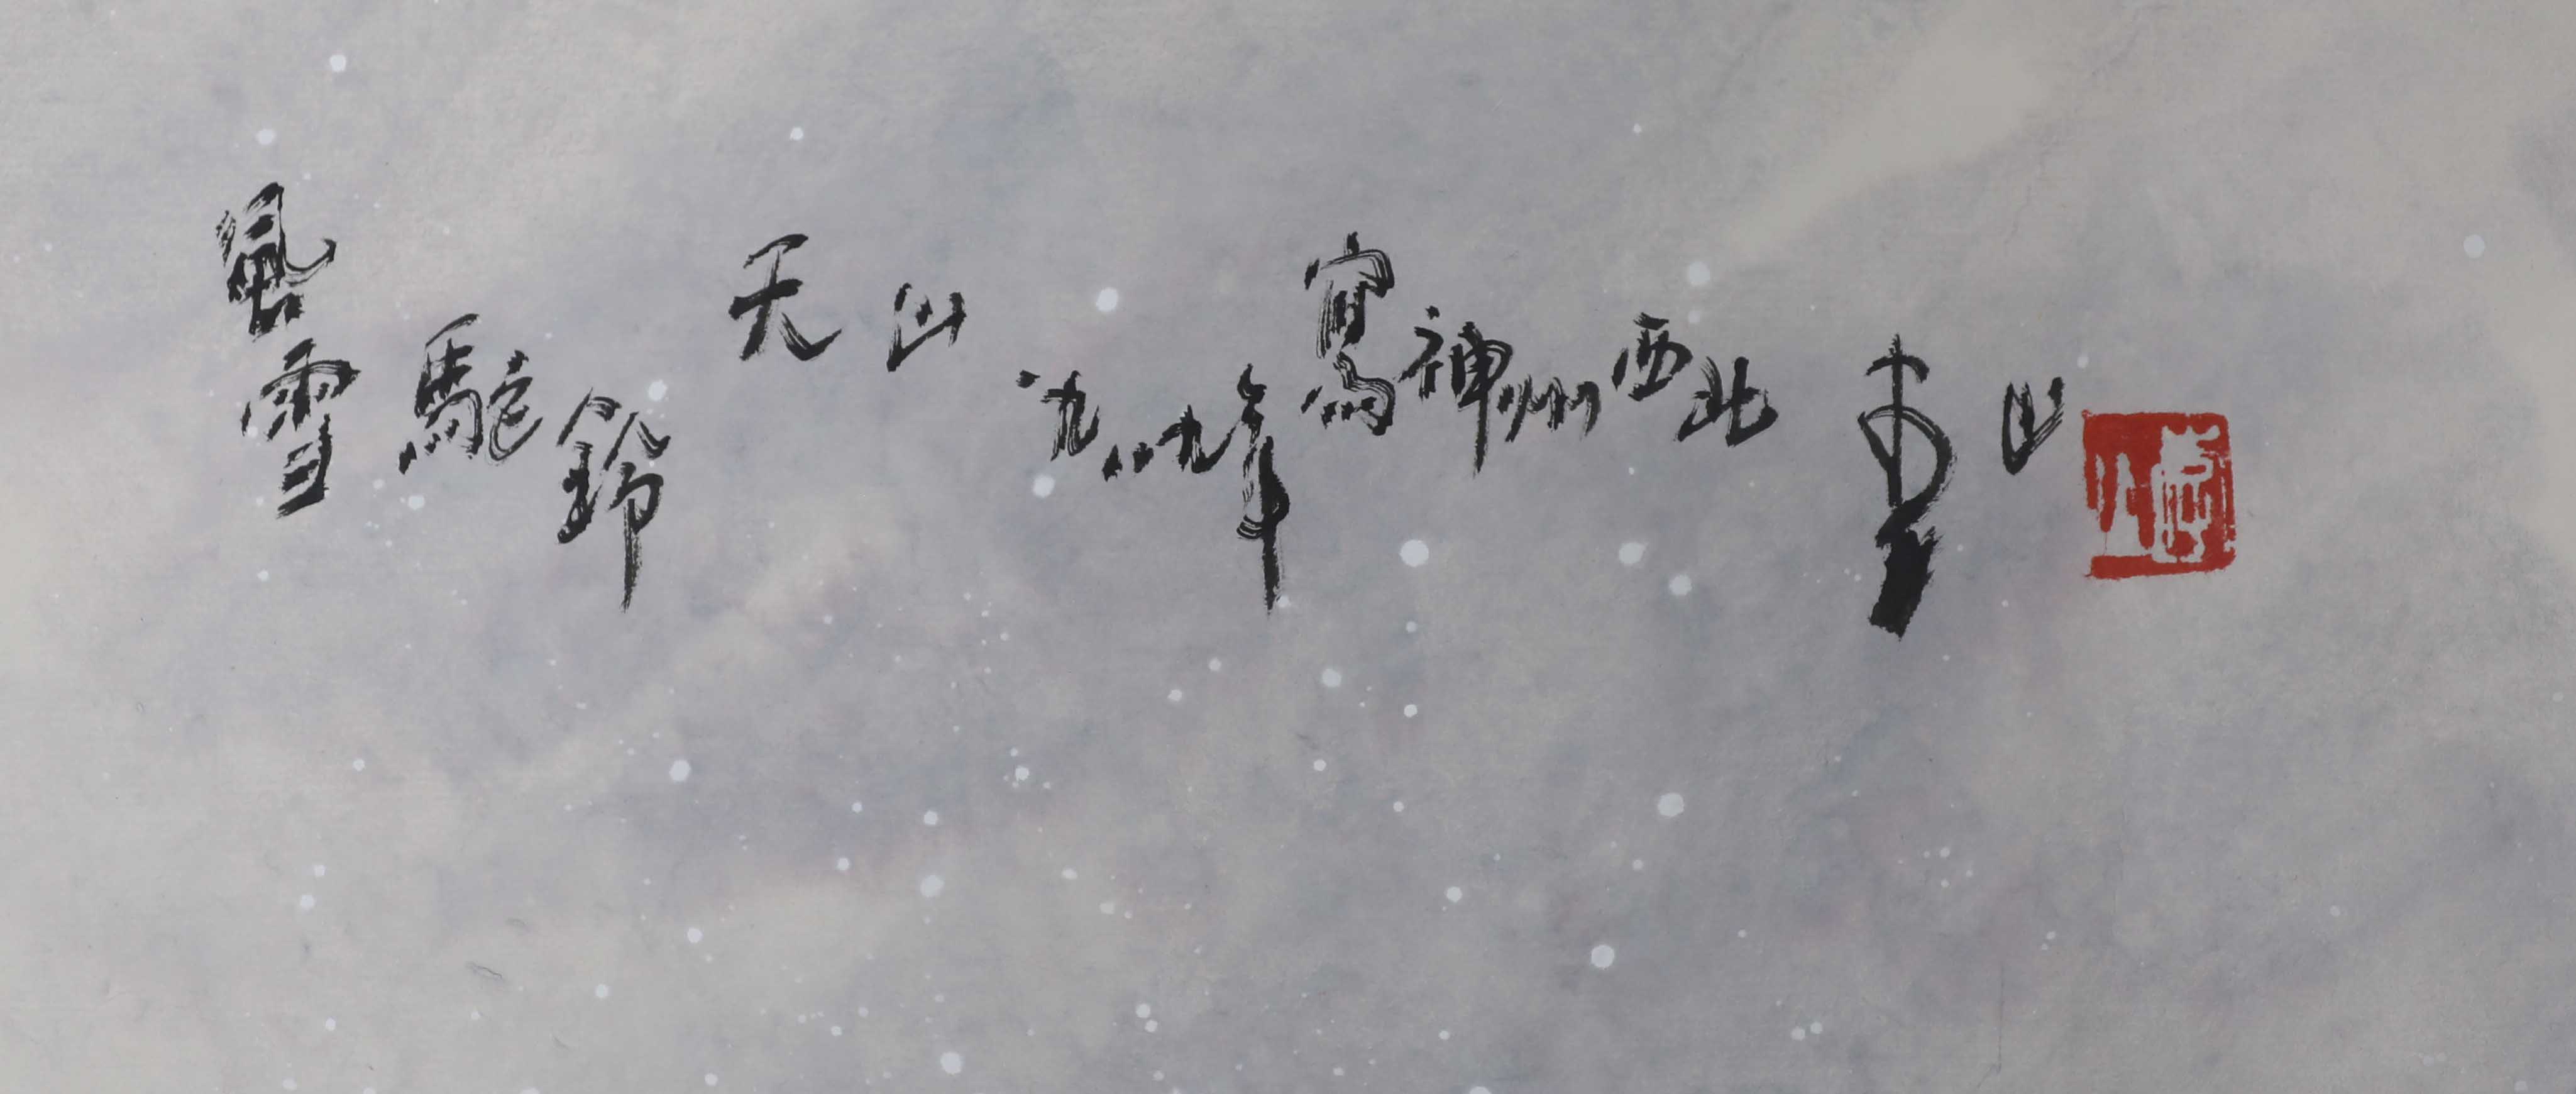 風雪駝鈴 天山 一九八九年寫神州西北 山